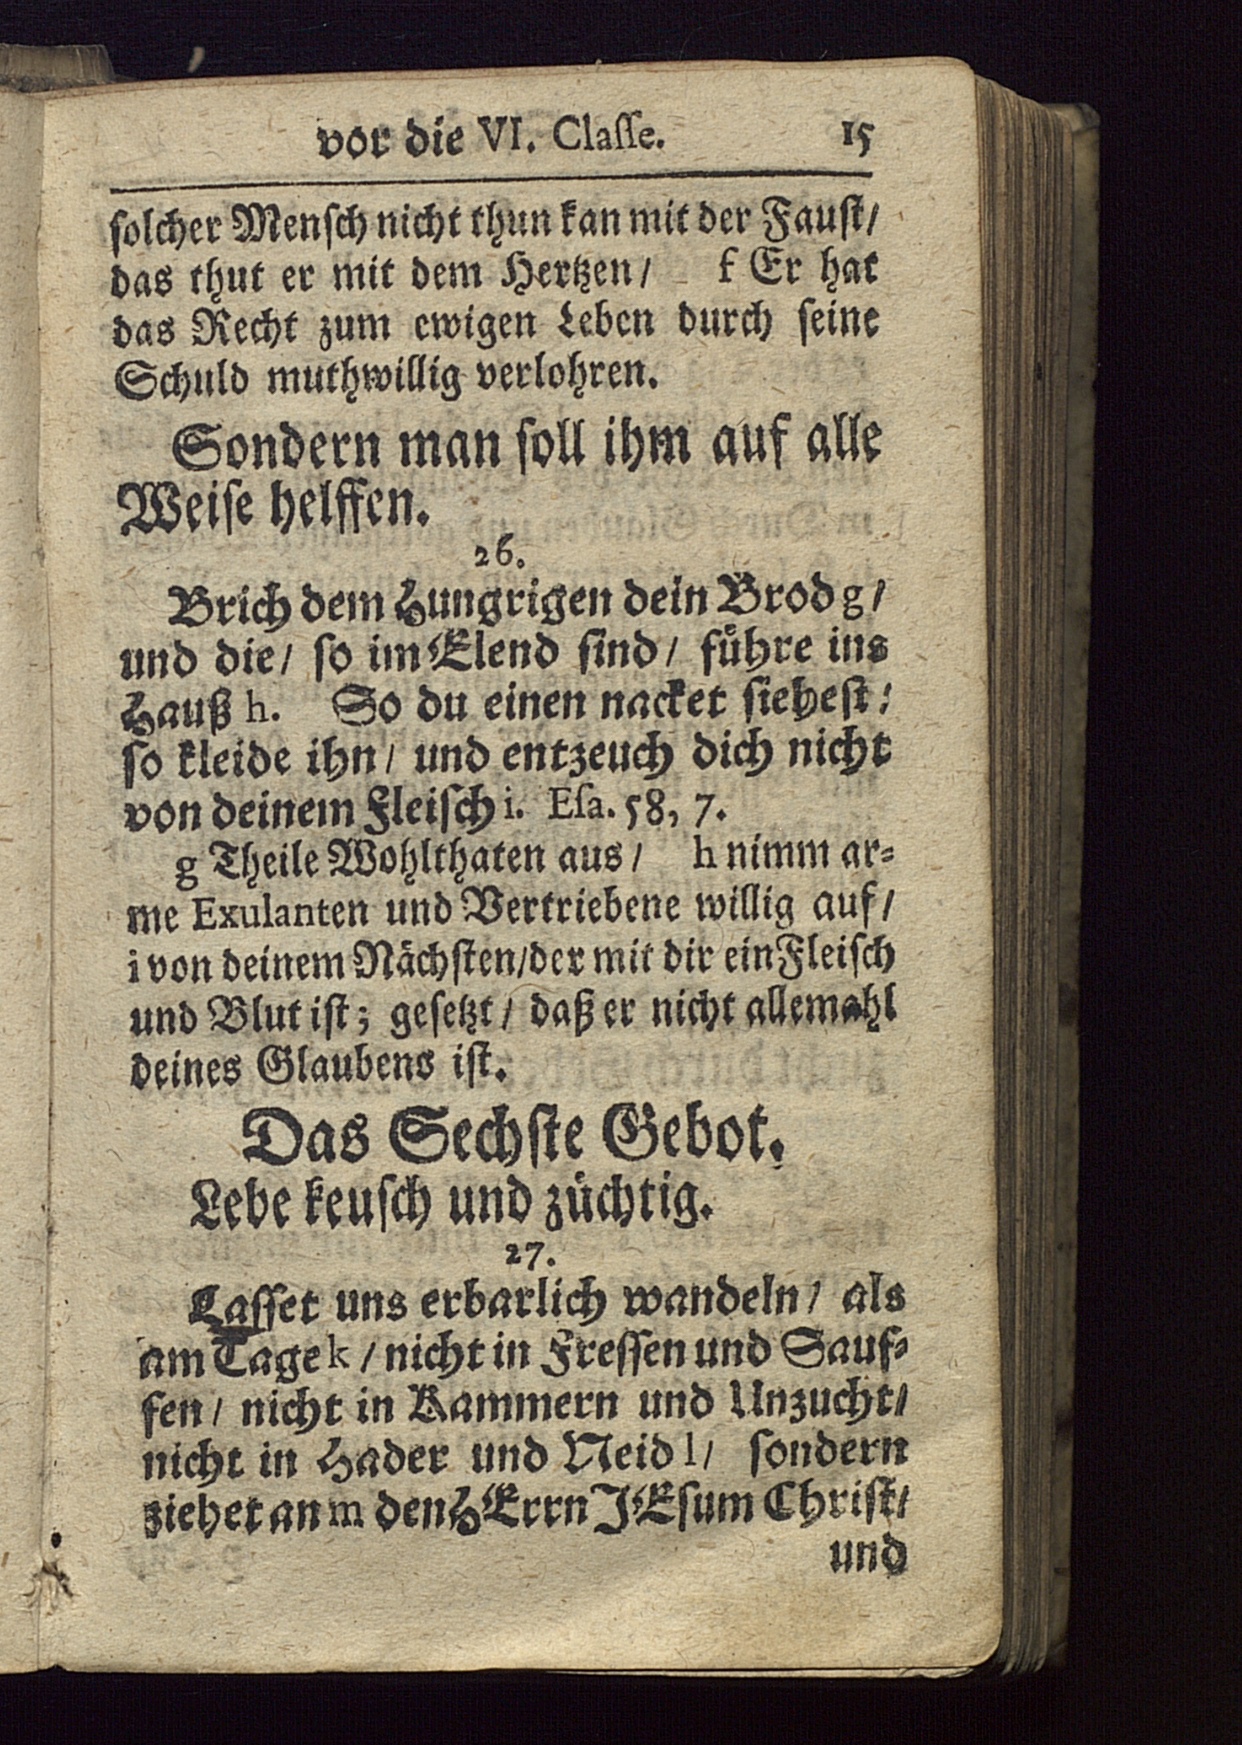 vor die VI. Claſſe. 15
ſolcher Menſch nicht thun kan mit der Fauſt/
das thut er mit dem Hertzen/ f Er hat
das Recht zum ewigen Leben durch ſeine
Schuld muthwillig verlohren.
Sondern man ſoll ihm auf alle
Weiſe helffen.
26.
Brich dem Hungrigen dein Brod g/
und die/ ſo im Elend ſind/ fuͤhre ins
Hauß h. So du einen nacket ſieheſt/
ſo kleide ihn/ und entzeuch dich nicht
von deinem Fleiſch i. Eſa. 58, 7.
g Theile Wohlthaten aus/ h nimm ar⸗
me Exulanten und Vertriebene willig auf/
i von deinem Naͤchſten/der mit dir ein Fleiſch
und Blut iſt; geſetzt/ daß er nicht allemahl
deines Glaubens iſt.
Das Sechſte Gebot.
Lebe keuſch und zuͤchtig.
27.
Laſſet uns erbarlich wandeln/ als
am Tage k/nicht in Freſſen und Sauf⸗
fen/ nicht in Kammern und Unzucht/
nicht in Hader und Neid l/ ſondern
ziehet an m den HErrn JEſum Chriſt/
und